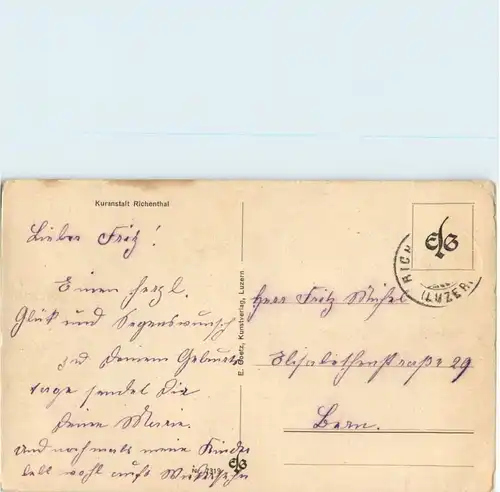 Kuranstalt Richenthal
Lieber Fritz!
Einen herzl.
Glück und Segenswunsch
zu Deinem Geburts
tage sendet Dir
Deine Marie.
und nochmals meine
lebt wohl aufs Wiedersehn
E. Goetz, Kunstverlag, Luzern
EG
RICH
(LUZER
Herr Fritz
Elisabethenstraße 29
Bern.
EG